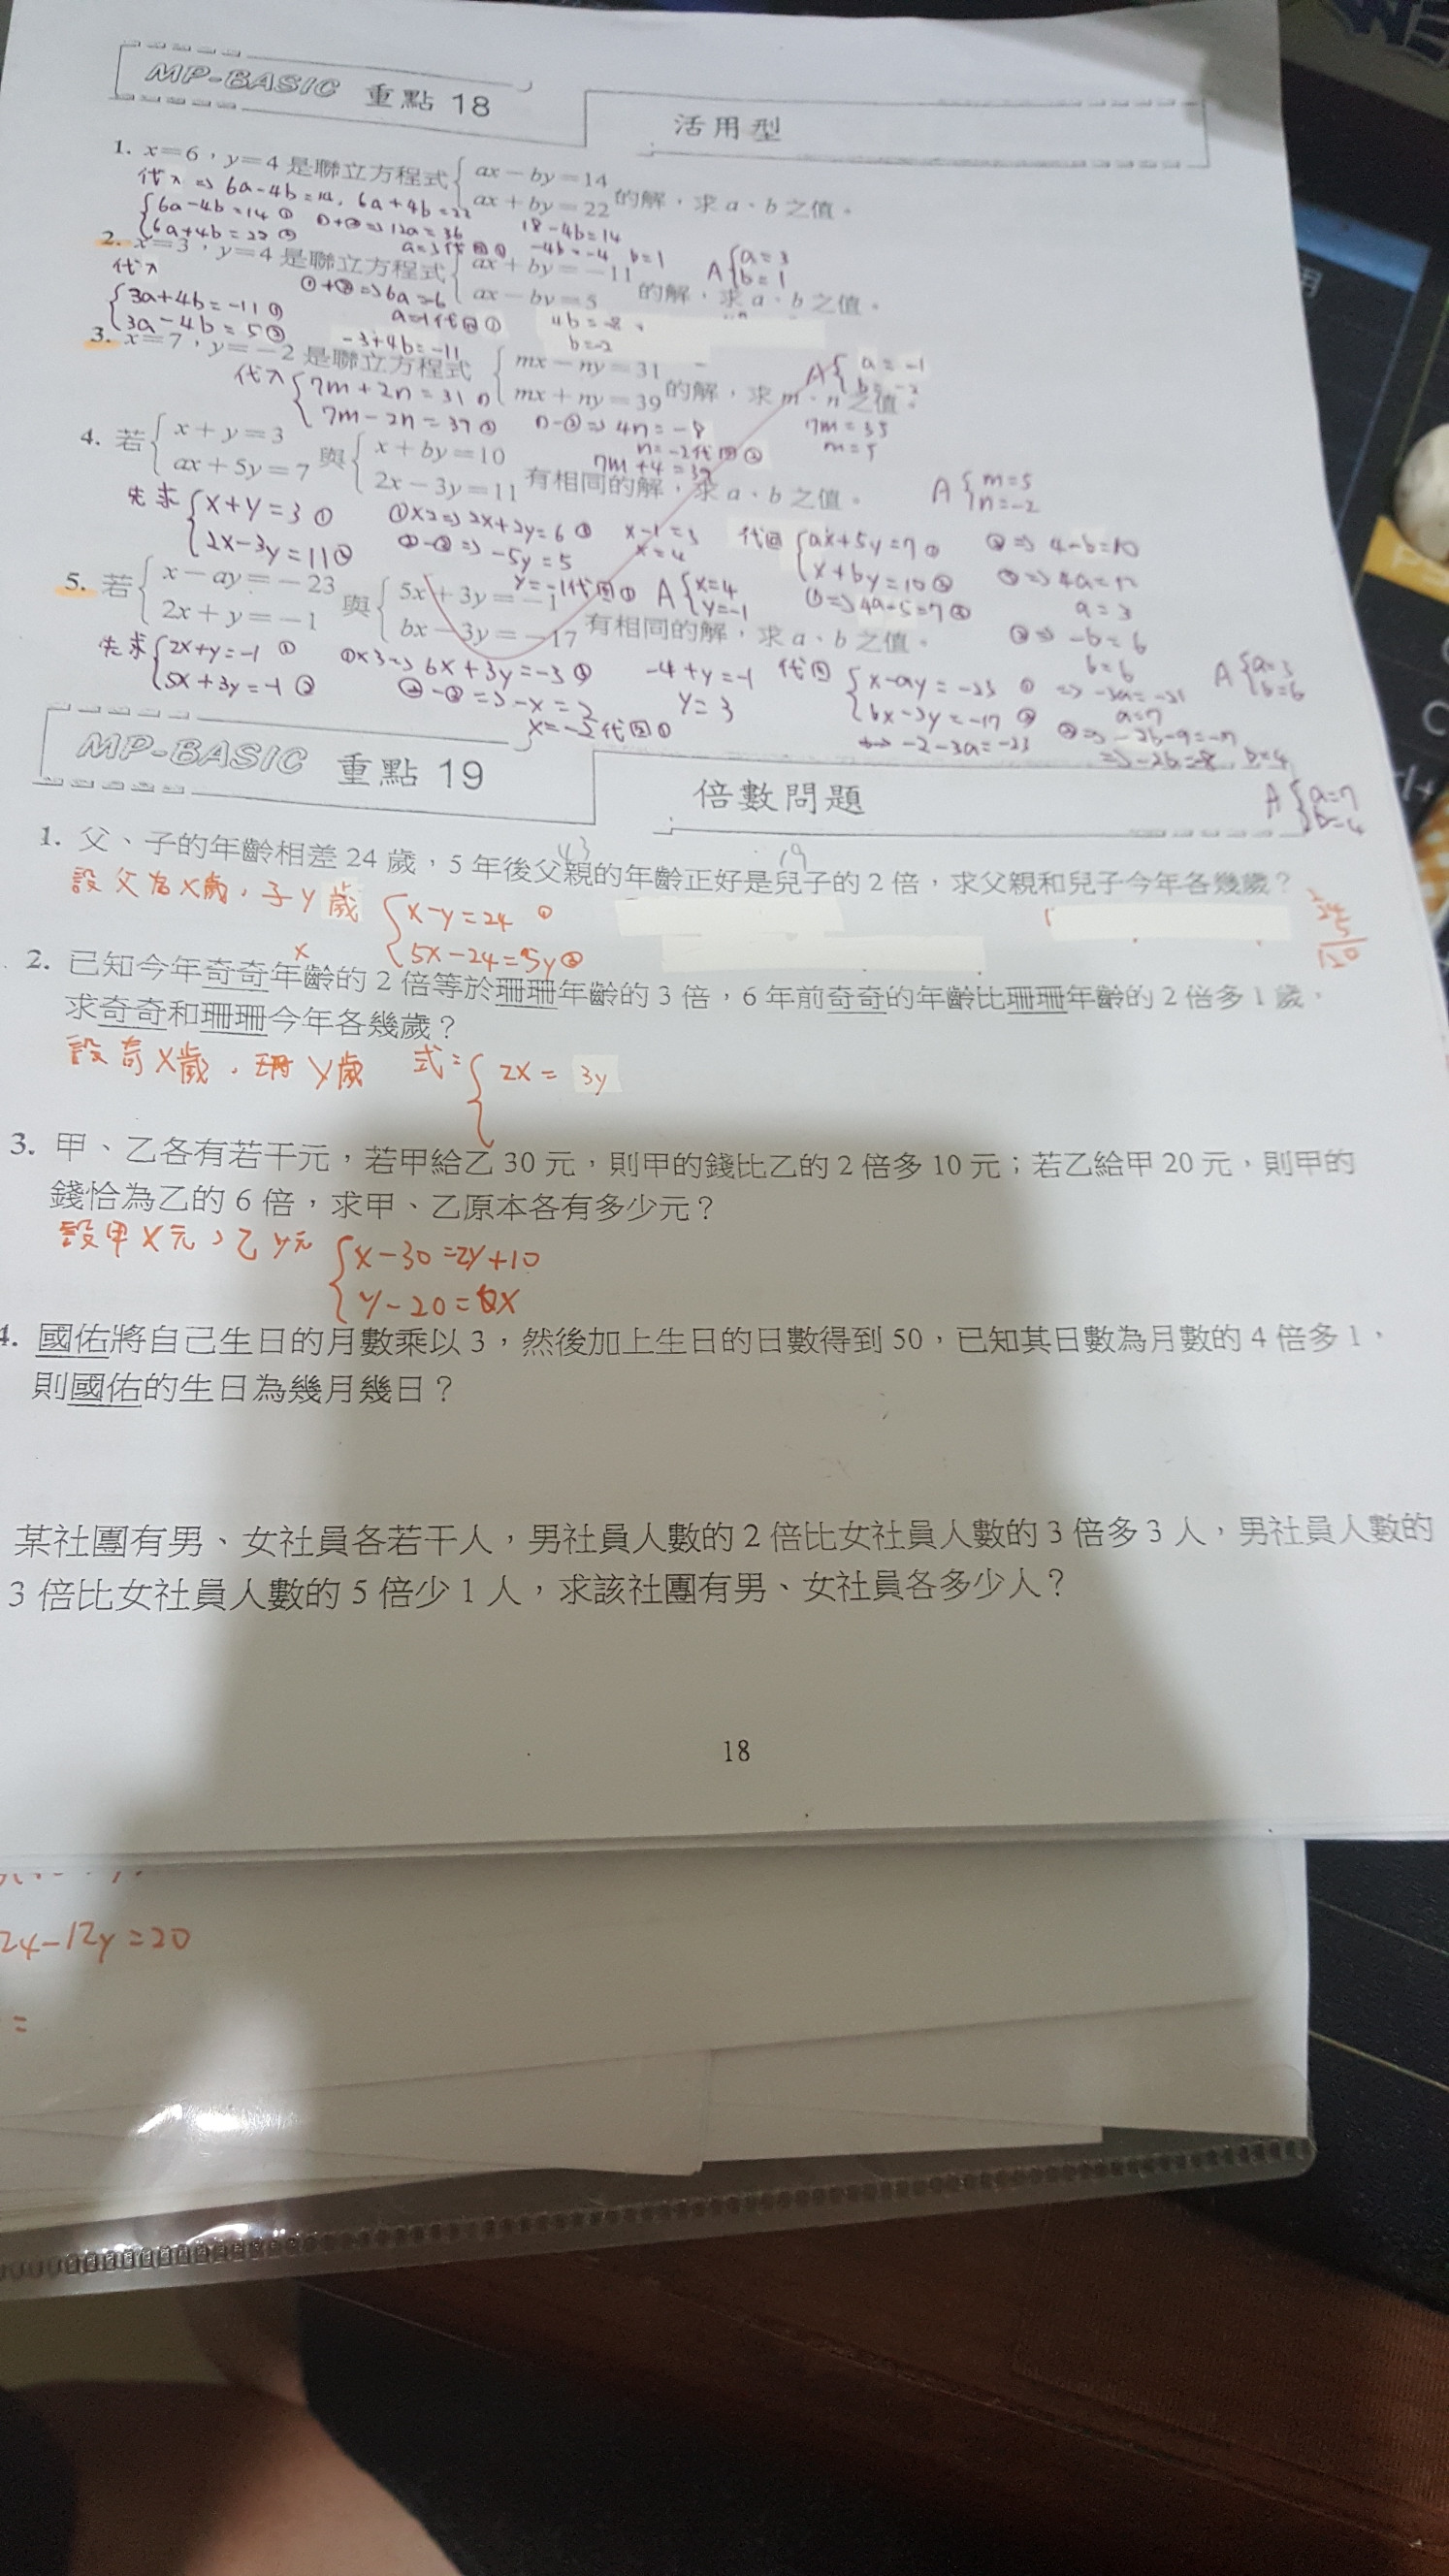 MP-BASIC 重點 18
活用型
1. x=6，y=4 是聯立方程式 { ax-by=14
ax+by=22 的解，求 a、b 之值。
代入 ⇒ 6a-4b=14, 6a+4b=22
{ 6a-4b=14 ① ①+②⇒12a=36 18-4b=14
6a+4b=22 ② a=3代回① -4b=-4 b=1 A { a=3
b=1
2. x=3，y=4 是聯立方程式 { ax+by=-11
ax-by=5 的解，求 a、b 之值。
代入
{ 3a+4b=-11 ① ①+②⇒6a=-6
3a-4b=5 ② a=-1代回① 4b=-8
-3+4b=-11 b=-2 A { a=-1
b=-2
3. x=7，y=-2 是聯立方程式 { mx-ny=31
mx+ny=39 的解，求 m、n 之值。
代入 { 7m+2n=31 ①
7m-2n=39 ② ①-②⇒4n=-8 7m=35
n=-2代回② m=5
7m+4=39 A { m=5
n=-2
4. 若 { x+y=3
ax+5y=7 與 { x+by=10
2x-3y=11 有相同的解，求 a、b 之值。
先求 { x+y=3 ① ①×2⇒2x+2y=6 ③ x-1=3 代回 { ax+5y=7 ① ②⇒4-b=10
2x-3y=11 ② ②-③⇒-5y=5 x=4 x+by=10 ② ①⇒4a=12
y=-1代回① A { x=4
y=-1 ①⇒4a-5=7 a=3
②⇒-b=6
b=6 A { a=3
b=6
5. 若 { x-ay=-23
2x+y=-1 與 { 5x+3y=-1
bx-3y=-17 有相同的解，求 a、b 之值。
先求 { 2x+y=-1 ① ①×3⇒6x+3y=-3 ③ -4+y=-1 代回 { x-ay=-23 ① ⇒-3a=-21
5x+3y=-1 ② ②-③⇒-x=2 y=3 bx-3y=-17 ② a=7
x=-2代回① ⇒-2-3a=-23 ②⇒-2b-9=-17
⇒-2b=-8, b=4
A { a=7
b=4
MP-BASIC 重點 19
倍數問題
43 19
1. 父、子的年齡相差 24 歲，5 年後父親的年齡正好是兒子的 2 倍，求父親和兒子今年各幾歲？
設父為x歲，子y歲 { x-y=24 ①
5x-24=5y ②
24
5
120
x
2. 已知今年奇奇年齡的 2 倍等於珊珊年齡的 3 倍，6 年前奇奇的年齡比珊珊年齡的 2 倍多 1 歲，
求奇奇和珊珊今年各幾歲？
設奇x歲，珊y歲 式：{ 2x=3y
3. 甲、乙各有若干元，若甲給乙 30 元，則甲的錢比乙的 2 倍多 10 元；若乙給甲 20 元，則甲的
錢恰為乙的 6 倍，求甲、乙原本各有多少元？
設甲x元，乙y元 { x-30=2y+10
y-20=6x
4. 國佑將自己生日的月數乘以 3，然後加上生日的日數得到 50，已知其日數為月數的 4 倍多 1，
則國佑的生日為幾月幾日？
某社團有男、女社員各若干人，男社員人數的 2 倍比女社員人數的 3 倍多 3 人，男社員人數的
3 倍比女社員人數的 5 倍少 1 人，求該社團有男、女社員各多少人？
18
24-12y=20
=